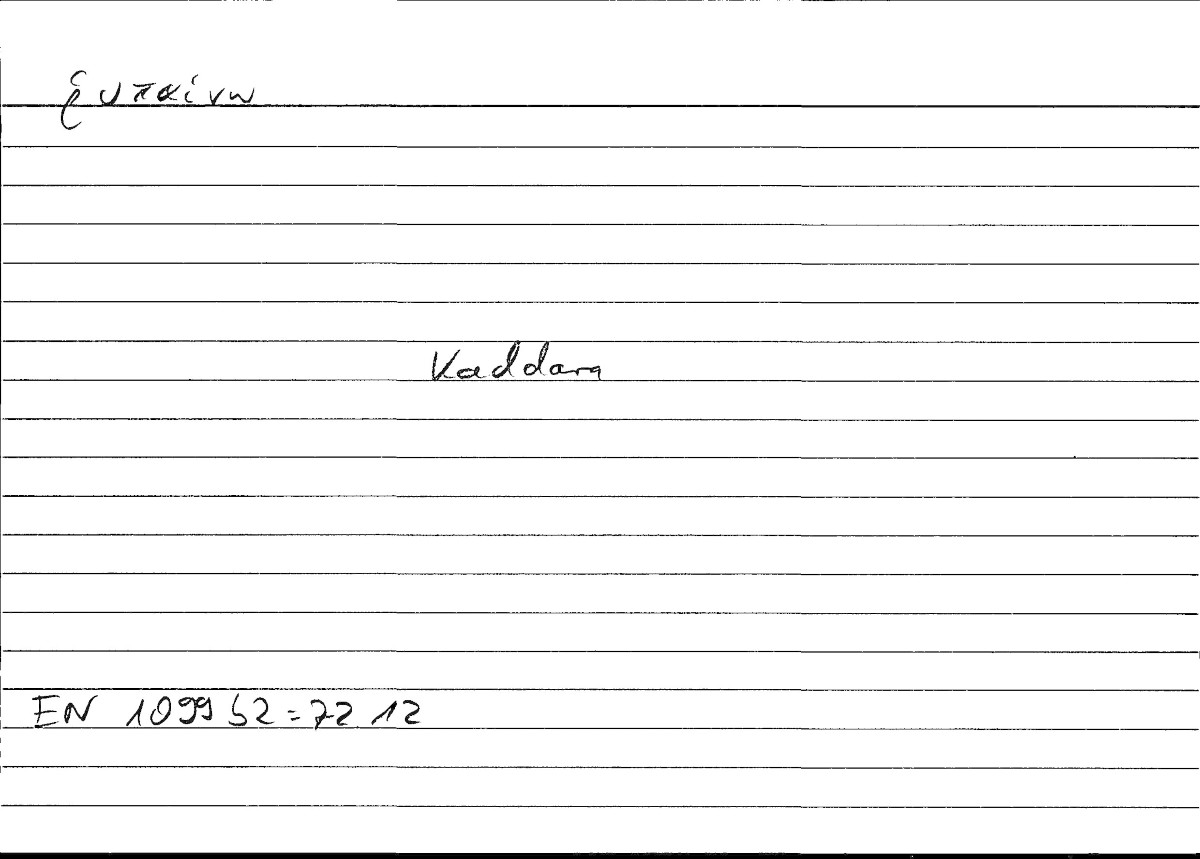 ῥυπαίνω
Kaddara
EN 1099 b2 = 72 12